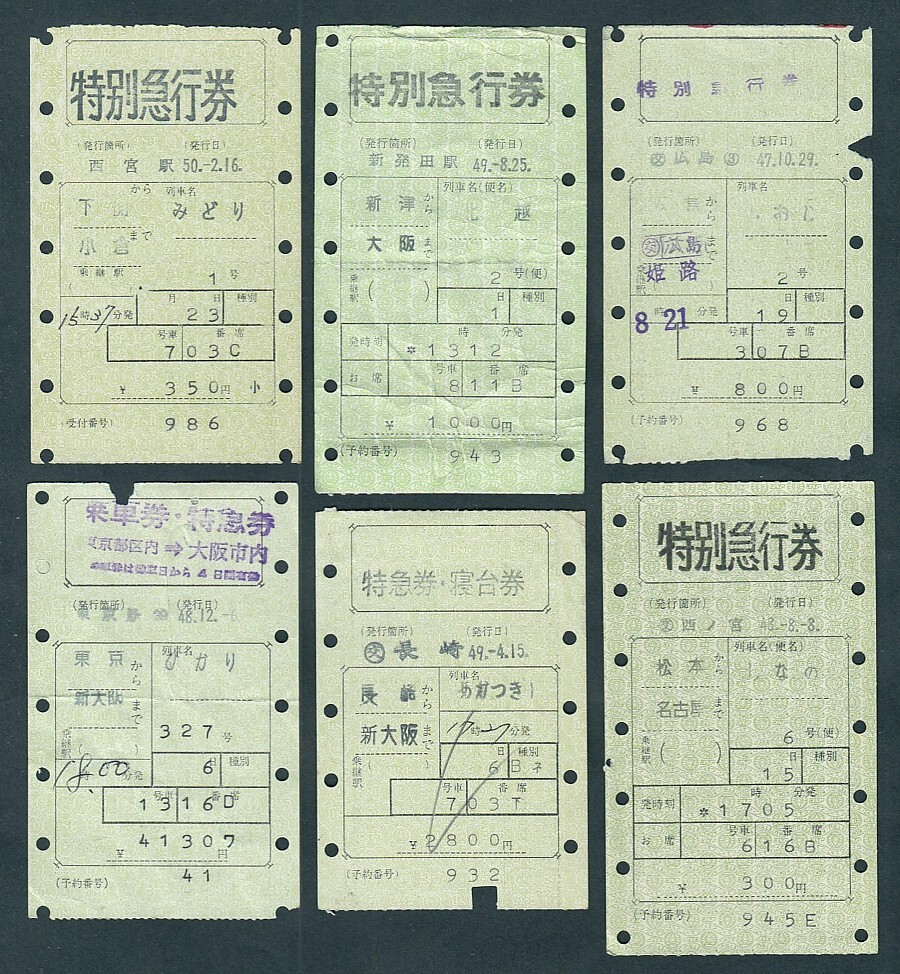 特別急行券
(発行箇所) (発行日)
西宮駅 50.-2.16.
から 列車名
下関 みどり
小倉 まで
乗継駅
( 1号
月 日 種別
15時37分発 23
号車 番席
7 03C
¥ 350円 小
受付番号) 986
特別急行券
(発行箇所) (発行日)
新発田駅 49.-8.25.
列車名(便名)
新津から 北越
大阪まで
乗継駅 ( ) 2号(便)
日 種別
1
時 分発
発時刻 *1312
号車 番席
お席 8 11B
¥ 1000円
(予約番号) 943
特別急行券
(発行箇所) (発行日)
交 広島 3 47.10.29.
列車名
から
交 広島 まで
乗継駅 姫路 2号
日 種別
8 21 時 分発 19
号車 番席
3 07B
¥ 800円
(予約番号) 968
乗車券・特急券
東京都区内 ⇒ 大阪市内
から4日間有効
(発行箇所) (発行日)
48.12.-6
列車名
東京から ひかり
新大阪まで
乗継駅 ( 327号
日 種別
18時00分発 6
号車 番席
13 16D
41307
¥ 円
(予約番号) 41
特急券・寝台券
(発行箇所) (発行日)
交 長崎 49.-4.15.
列車名
長崎から あかつき1
新大阪まで
17時27分発
日 種別
乗継駅 ( ) 6 Bネ
号車 番席
7 03下
¥2800円
(予約番号) 932
特別急行券
(発行箇所) (発行日)
交 西ノ宮 48.-8.-8.
列車名(便名)
松本から しなの
名古屋まで
乗継駅 ( ) 6号(便)
日 種別
15
時 分発
発時刻 *1705
号車 番席
お席 6 16B
¥ 300円
(予約番号) 945E